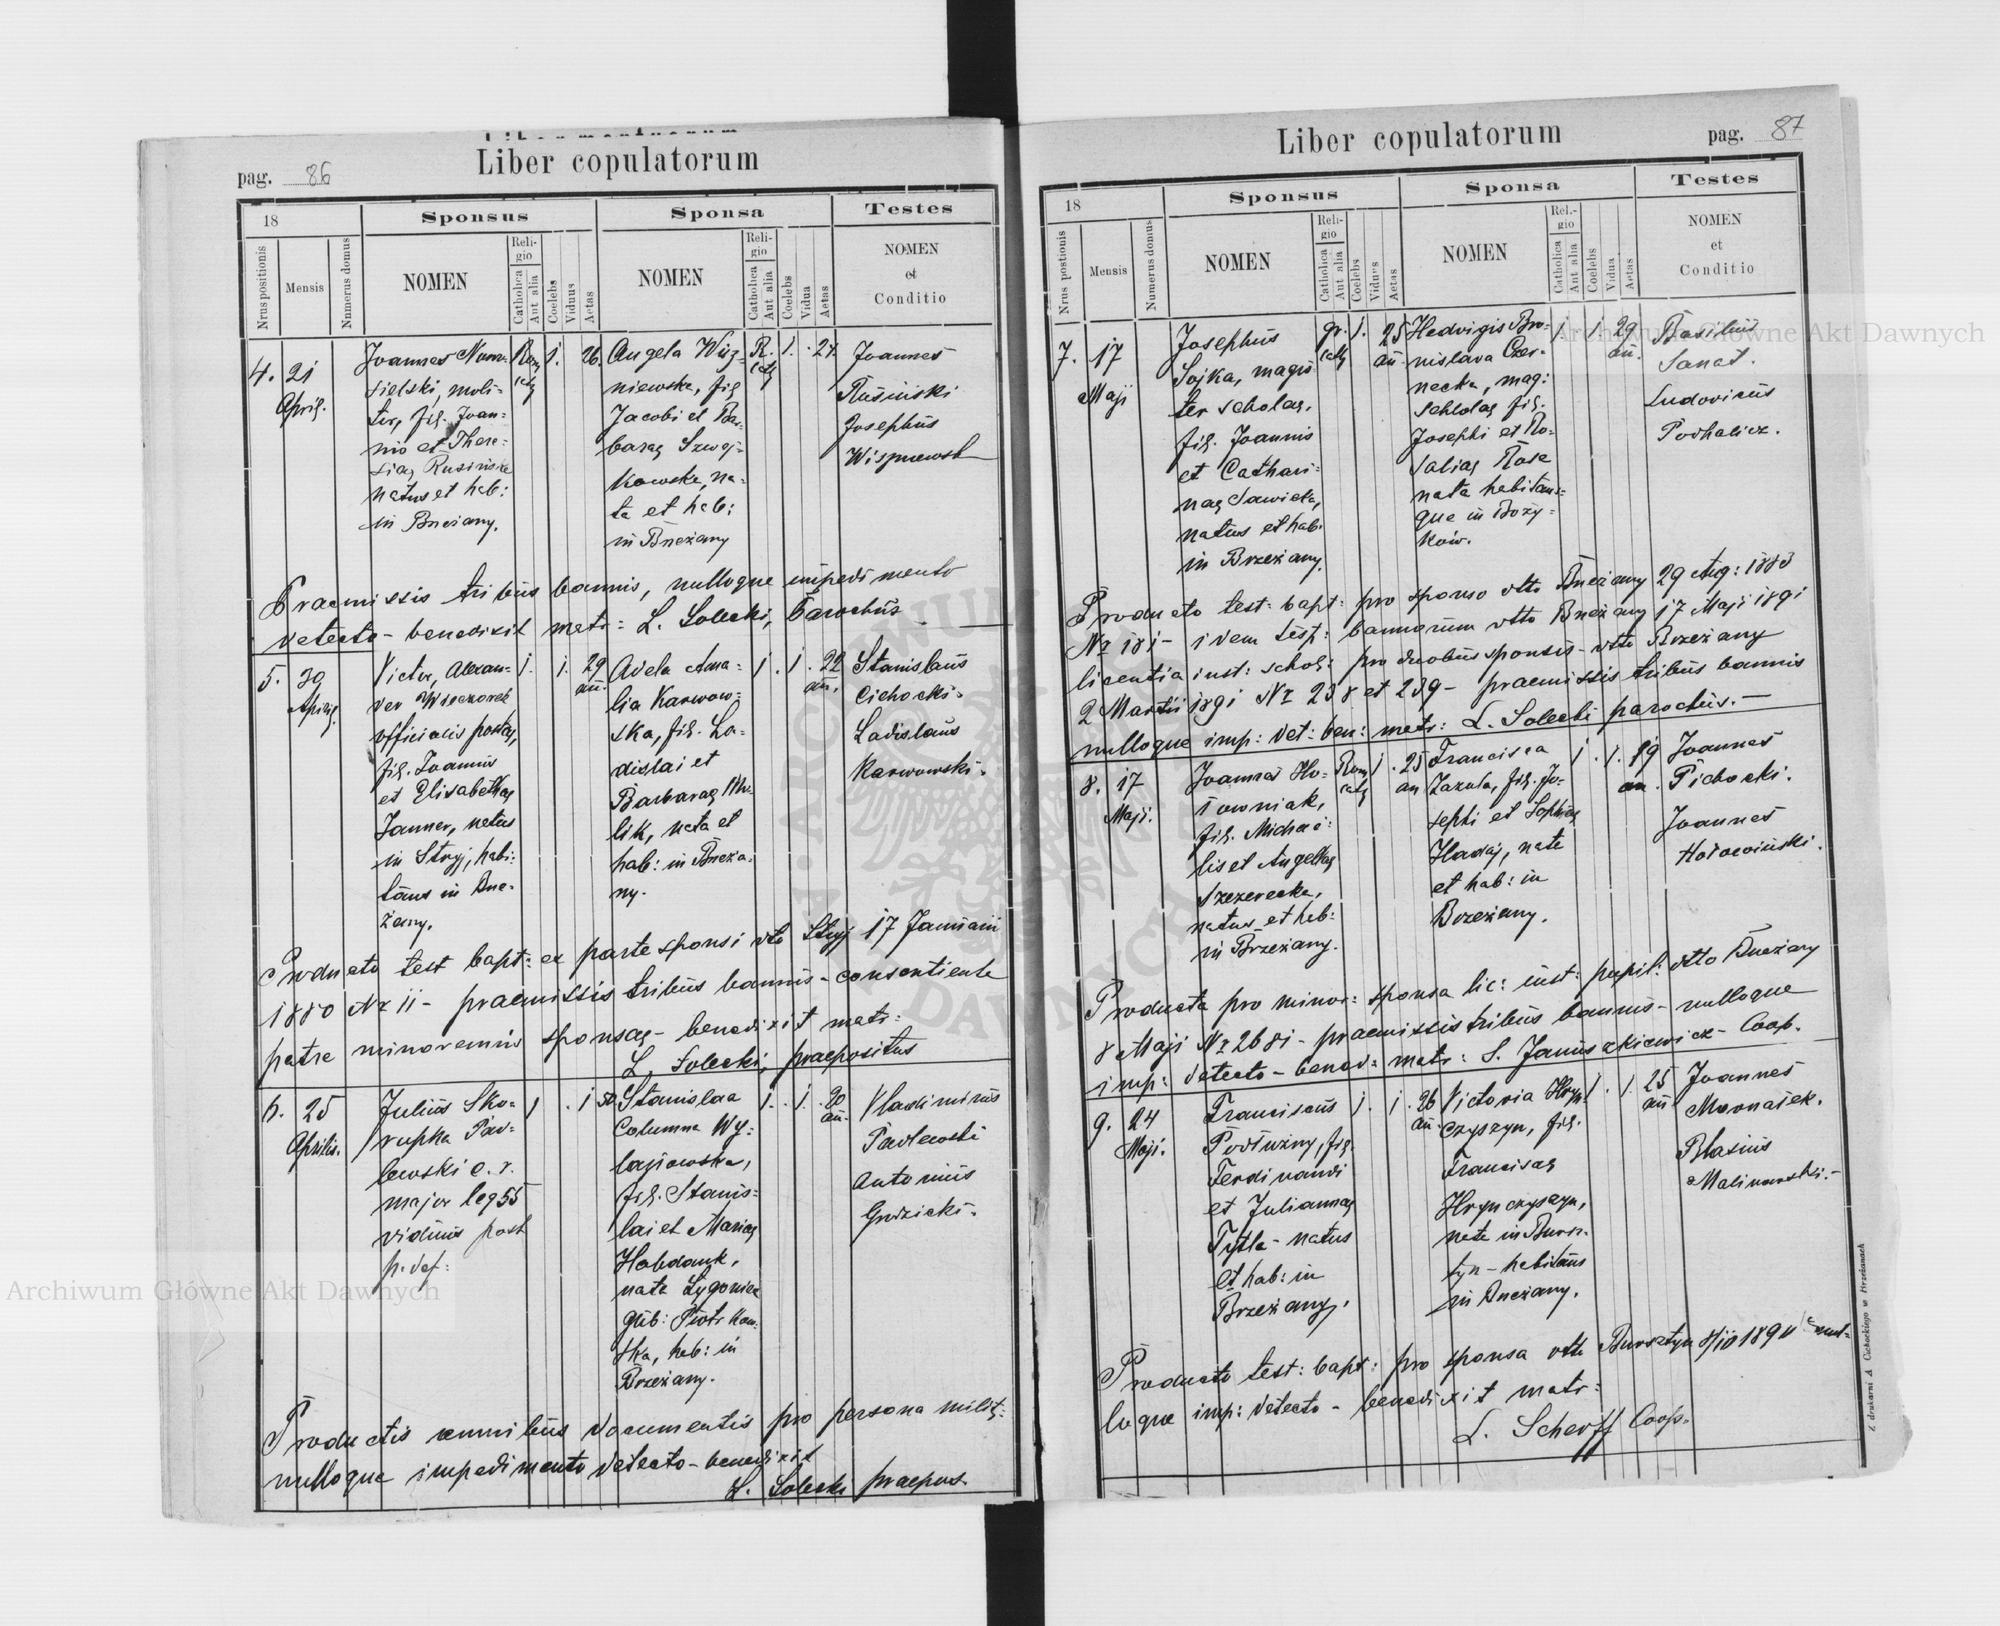 Liber copulatorum
pag. 86
18
Sponsus
Sponsa
Testes
Nrus positionis
Mensis
Numerus domus
NOMEN
Religio
Catholica
Aut alia
Coelebs
Viduus
Aetas
NOMEN
Religio
Catholica
Aut alia
Coelebs
Vidua
Aetas
NOMEN
et
Conditio
4. 21
April.
Joannes
sielski, moli-
tor, fil. Joan-
nis et There-
siae Rusińska
natus et hab:
in Brzeżany.
Rom
cath
1.
26.
Angela Wiz-
niewska, fil
Jacobi et Bar-
barae Szwej-
kowska, na-
ta et hab:
in Brzeżany
R.
cath
1.
24.
Joannes
Rusiński
Josephus
Praemissis tribus bannis, nulloque impedimento
detecto - benedixit matr: L. Solecki, Parochus.
5. 30
Aprilis.
Victor, Alexan-
der Wieczorek
officialis postae,
fil. Joannis
et Elisabethae
Janner, natus
in Stryj, habi-
tans in Brze-
żany.
1.
1.
29
an.
Adela Ama-
lia Karwow-
ska, fil. La-
dislai et
Barbarae
lik, nata et
hab: in Brzeża-
ny.
1.
1.
22
an.
Stanislaus
Cichocki.
Ladislaus
Karwowski.
Producto test bapt: ex parte sponsi dtto Stryj 17 Januarii
1880 Nr 11 - praemissis tribus bannis - consentiente
patre minorennis sponsae - benedixit matr:
L. Solecki, praepositus
6. 25
Aprilis.
Julius Sko-
rupka Pad-
lewski c. r.
major leg 55
viduus post
p. def:
1
1
50
Stanislaa
Columna Wy-
fil. Stanis-
lai et Mariae
Habdank,
nata
gub: Piotrkow-
ska, hab: in
Brzeżany.
1.
1.
30
an.
Vladimirus
Padlewski
Antonius
Grodzicki.
Productis omnibus documentis pro persona milit:
nulloque impedimento detecto - benedixit
L. Solecki praepos.
Liber copulatorum
pag. 87
18
Sponsus
Sponsa
Testes
Nrus postionis
Mensis
Numerus domus
NOMEN
Religio
Catholica
Aut alia
Coelebs
Viduus
Aetas
NOMEN
Religio
Catholica
Aut alia
Coelebs
Vidua
Aetas
NOMEN
et
Conditio
7. 17
Maji
Josephus
Sojka, magis
ter scholae,
fil. Joannis
et Cathari-
nae Sawicka,
natus et hab.
in Brzeżany.
gr.
cath
1.
25
an.
Hedvigis Bro-
nislava Czer-
necka, mag:
scholae fil.
Josephi et Ro-
saliae Rose
nata habitans-
que in Boży-
ków.
1.
1.
29
an.
Basilius
Sanat.
Ludovicus
Podhalicz.
Producto test: bapt: pro sponso dtto Brzeżany 29 Aug: 1883
Nr 181 - idem test: bannorum dtto Brzeżany 17 Maji 1891
licentia inst: schol: pro duobus sponsis - dtto Brzeżany
2 Martii 1891 Nr 238 et 239 - praemissis tribus bannis
nulloque imp: det: ben: matr: L. Solecki parochus.
8. 17
Maji.
Joannes Ho-
łowniak,
fil. Michae-
lis et Angelae
Szczerecka,
natus et hab:
in Brzeżany.
Rom
cath
1.
25
an
Francisca
Zazula, fil. Jo-
sephi et Sophiae
Hadaj, nata
et hab: in
Brzeżany.
1.
1.
19
an.
Joannes
Cichocki.
Joannes
Hołowiński.
Producta pro minor: sponsa lic: inst: pupil: dtto Brzeżany
8 Maji Nr 2681 - praemissis tribus bannis - nulloque
imp: detecto - bened: matr: S. Januszkiewicz Coop.
9. 24
Maji.
Franciscus
Podłużny, fil.
Ferdinandi
et Juliannae
Tytla - natus
et hab: in
Brzeżany.
1.
1.
26
an.
Victoria Hryn-
czyszyn, fil.
Franciscae
Hrynczyszyn,
nata in Bursz-
tyn - habitans
in Brzeżany.
1.
1.
25
an
Joannes
Blasius
Malinowski.
Producto test: bapt: pro sponsa dtto Bursztyn 8/10 1890 nul-
loque imp: detecto - benedixit matr:
L. Scherff Coop.
Z drukarni A Cichockiego w Brzeżanach
Archiwum Główne Akt Dawnych
Archiwum Główne Akt Dawnych